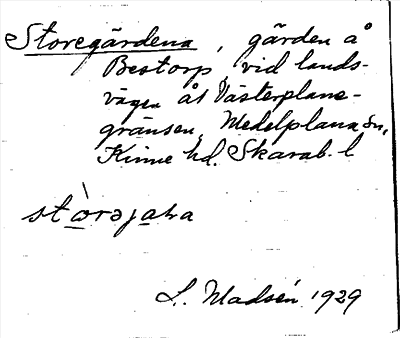 Storegärdena, gärden å
Bestorp, vid lands-
vägen åt Västerplana-
gränsen, Medelplana sn,
Kinne hd. Skarab. l
L. Madsén 1929